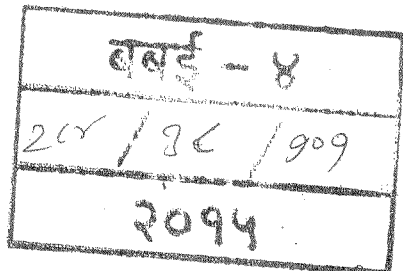 बबई - ४
/ ३८ / १०१
२०१५